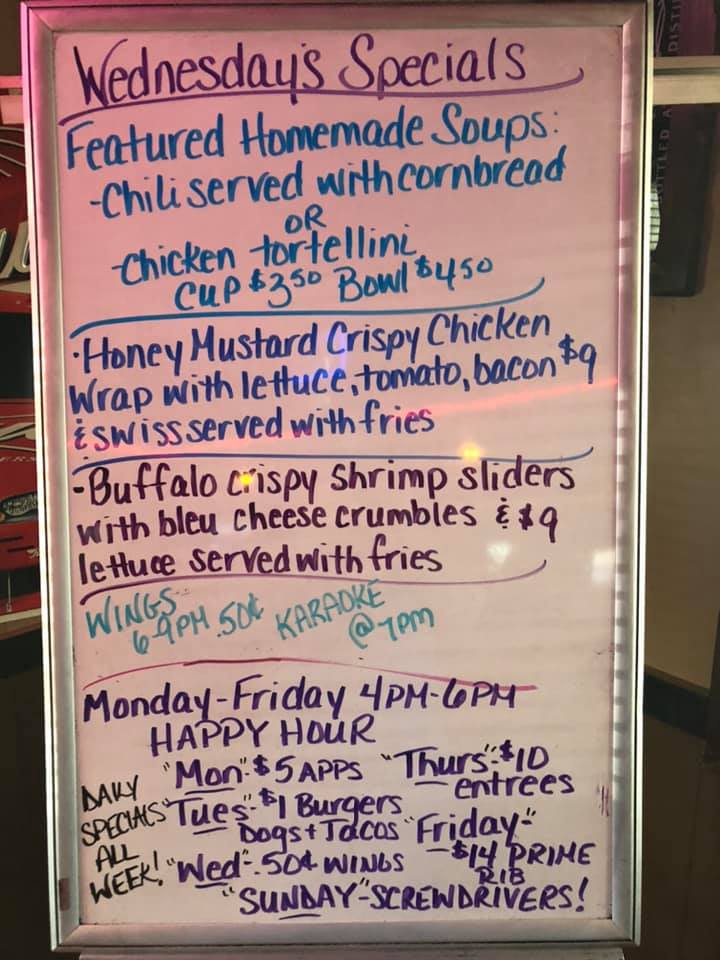 Wednesday's Specials
Featured Homemade Soups:
-Chili served with cornbread
OR
-Chicken tortellini
Cup $3.50 Bowl $4.50
·Honey Mustard Crispy Chicken
Wrap with lettuce, tomato, bacon $9
& swiss served with fries
-Buffalo crispy shrimp sliders
with bleu cheese crumbles & $9
lettuce served with fries
WINGS
6-9PM .50¢ KARAOKE
@ 7pm
Monday-Friday 4PM-6PM
HAPPY HOUR
DAILY
SPECIALS
ALL
WEEK!
"Mon"-$5 APPS
"Tues"-$1 Burgers
Dogs + Tacos
"Wed"-.50¢ WINGS
"Thurs"-$10
entrees
"Friday"-
$14 PRIME
RIB
"SUNDAY"-SCREWDRIVERS!